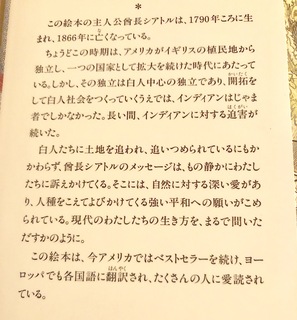 *
この絵本の主人公酋長シアトルは、1790年ころに生
まれ、1866年に亡くなっている。
ちょうどこの時期は、アメリカがイギリスの植民地から
独立し、一つの国家として拡大を続けた時代にあたってい
る。しかし、その独立は白人中心の独立であり、開拓を
して白人社会をつくっていくうえでは、インディアンはじゃま
者でしかなかった。長い間、インディアンに対する迫害が
続いた。
白人たちに土地を追われ、追いつめられているにもか
かわらず、酋長シアトルのメッセージは、もの静かにわたし
たちに訴えかけてくる。そこには、自然に対する深い愛があ
り、人種をこえてよびかけてくる強い平和への願いがこめ
られている。現代のわたしたちの生き方を、まるで問いた
だすかのように。
この絵本は、今アメリカではベストセラーを続け、ヨー
ロッパでも各国語に翻訳され、たくさんの人に愛読され
ている。